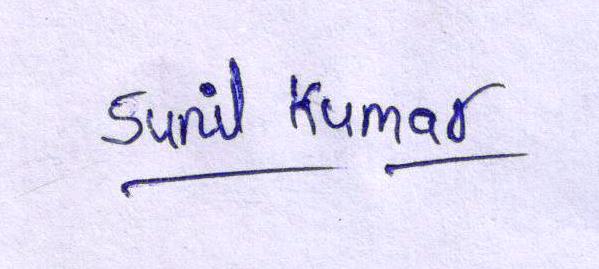 Sunil Kumar